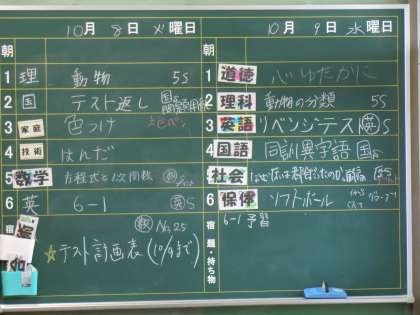 10月8日火曜日
朝
1 理 動物 5S
2 国 テスト返し
3 家庭 色つけ
4 技術 はんだ
5 数学 方程式と1次関数
6 英 6-1 英S
宿
数 No.25
☆テスト計画表(10/9まで)
10月9日水曜日
朝
1 道徳 心ゆたかに
2 理科 動物の分類 5S
3 英語 リベンジテス 英S
4 国語 同訓異字語 国S
5 社会
6 保体 ソフトボール
宿題・持ち物
6-1 予習